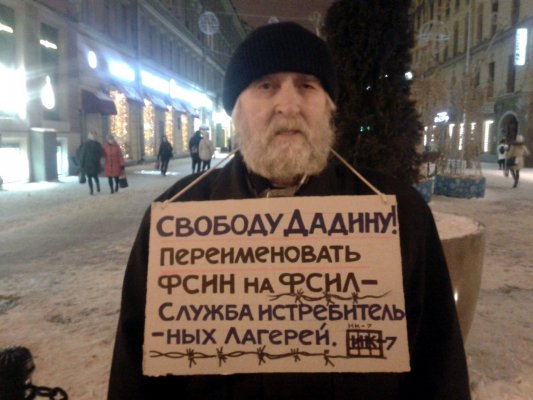 СВОБОДУ ДАДИНУ!
ПЕРЕИМЕНОВАТЬ
ФСИН НА ФСИЛ–
СЛУЖБА ИСТРЕБИТЕЛЬ
-НЫХ ЛАГЕРЕЙ. ИК-7
ИК-7